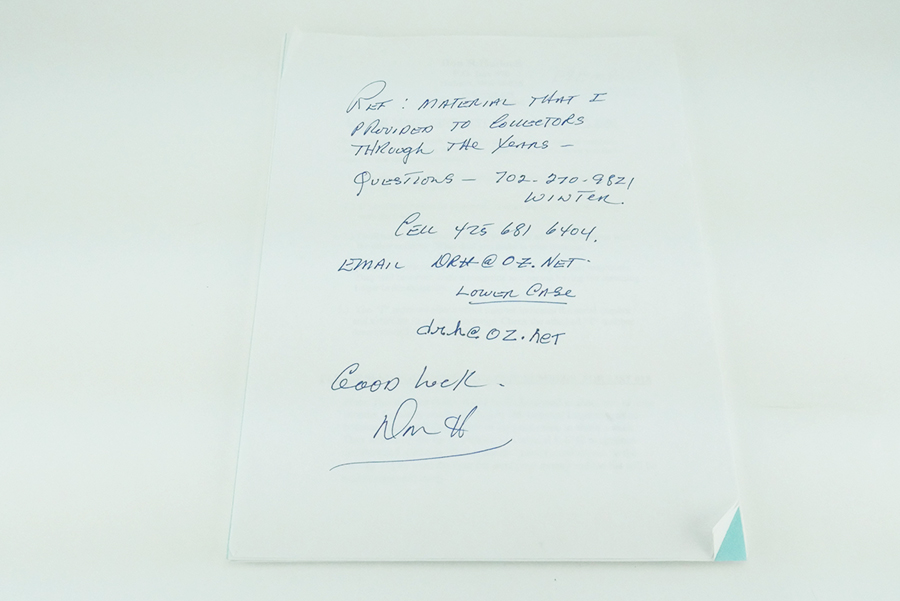 REF: MATERIAL THAT I
PROVIDED TO COLLECTORS
THROUGH THE YEARS –
QUESTIONS – 702-270-9821
WINTER.
CELL 425 681 6404.
EMAIL DRH@OZ.NET.
LOWER CASE
drh@OZ.NET
GOOD LUCK.
Don H